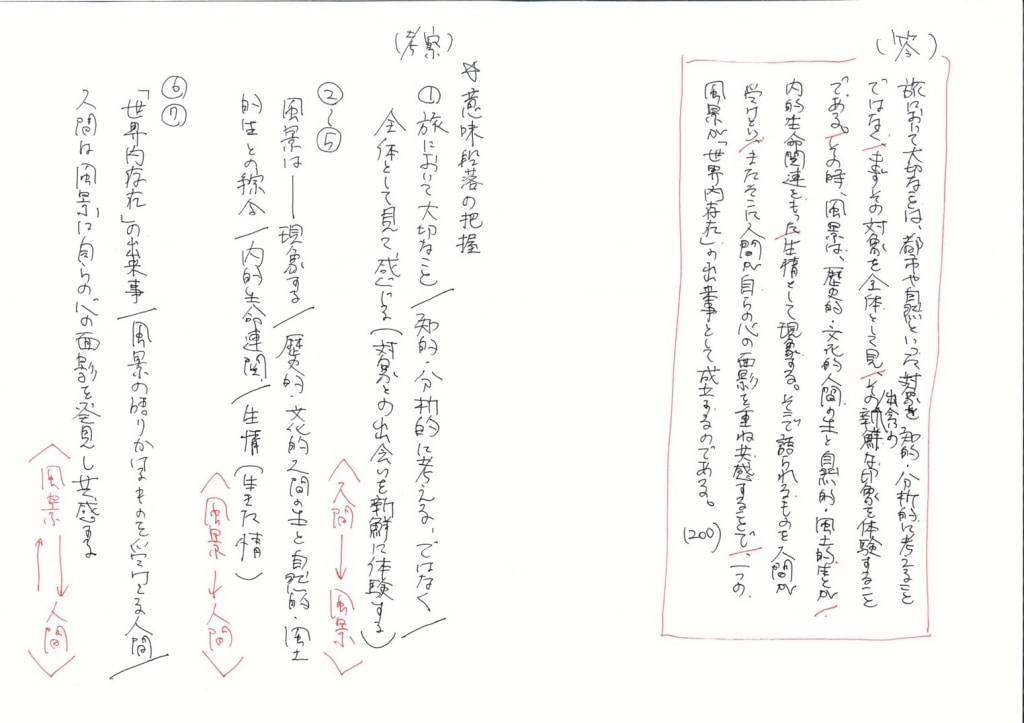 (答)
旅において大切なことは、都市や自然といった対象を知的・分析的に考えること
ではなく、まずその対象を全体として見、その出会いの新鮮な印象を体験すること
である。その時、風景は、歴史的・文化的人間の生と自然的・風土的生とが
内的生命関連をもった生情として現象する。そこで語られるものを人間が
受けとり、またそこに人間が自らの心の面影を重ね共感することで、一つの
風景が「世界内存在」の出来事として成立するのである。
(200)
(考察)
☆意味段落の把握
① 旅において大切なこと/知的・分析的に考える、ではなく/
全体として見て感じる(対象との出会いを新鮮に体験する)
〈人間→風景〉
②〜⑤
風景は——現象する/歴史的・文化的人間の生と自然的・風土
的生との綜合/内的生命連関/生情(生きた情)
〈風景→人間〉
⑥⑦
「世界内存在」の出来事/風景の語りかけるものを受けとる人間/
人間は風景に自らの心の面影を発見し共感する
〈風景⇄人間〉